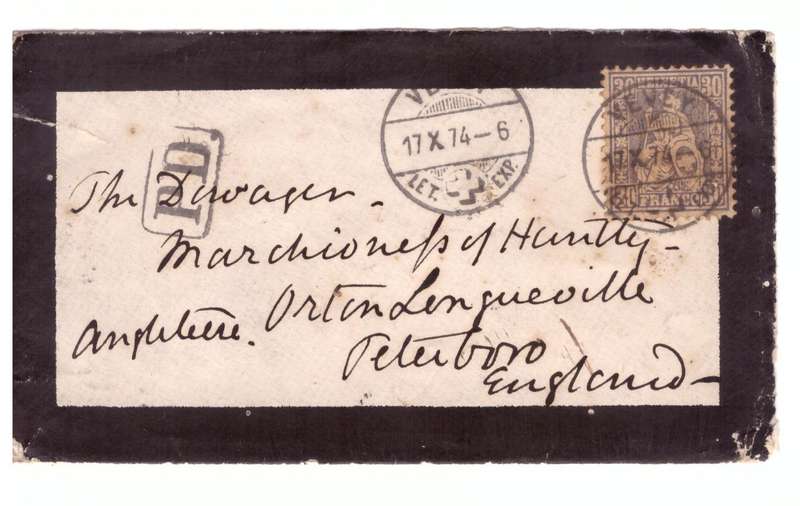 30 HELVETIA 30
FRANCO
VEVEY
17 X 74-6
LET. EXP.
VEVEY
17 X 74-6
P.D.
The Dowager
Marchioness of Huntly
Orton Longueville
Angleterre.
Peterboro
England